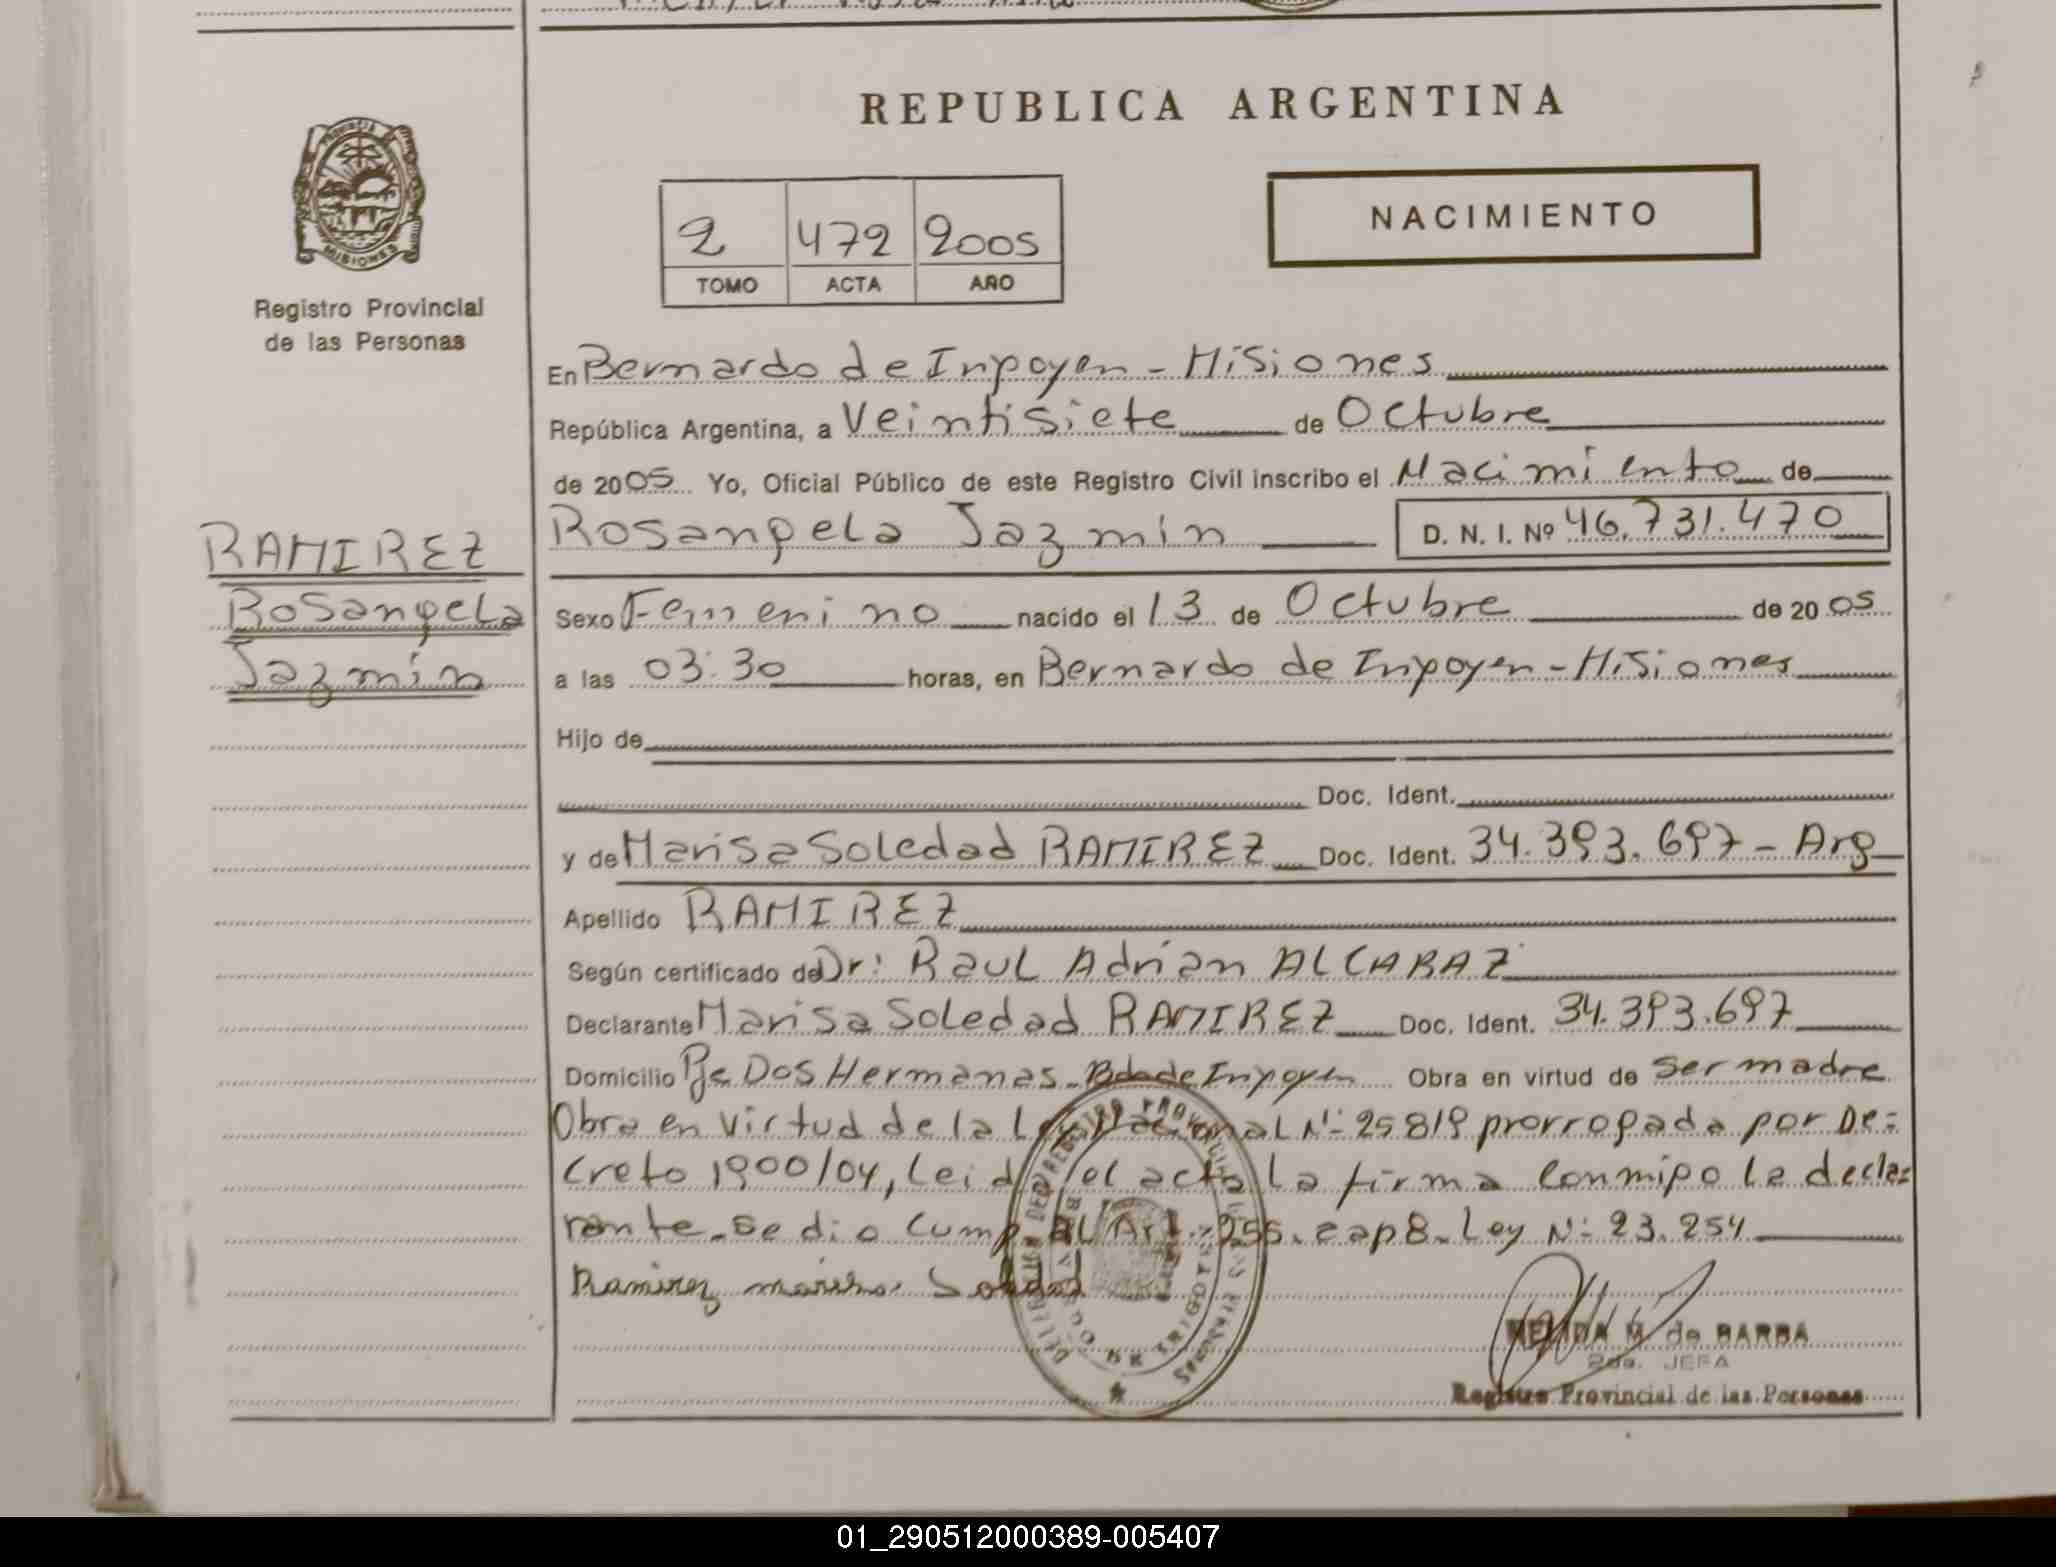 REPUBLICA ARGENTINA
PROVINCIA
MISIONES
Registro Provincial
de las Personas
2 472 2005
TOMO ACTA AÑO
NACIMIENTO
En Bernardo de Irigoyen - Misiones
República Argentina, a Veintisiete de Octubre
de 2005 Yo, Oficial Público de este Registro Civil inscribo el Nacimiento de
Rosangela Jazmín D. N. I. Nº 46.731.470
RAMIREZ
Rosangela
Jazmín
Sexo Femenino nacido el 13 de Octubre de 2005
a las 03:30 horas, en Bernardo de Irigoyen - Misiones
Hijo de
Doc. Ident.
y de Marisa Soledad RAMIREZ Doc. Ident. 34.393.697 - Arg
Apellido RAMIREZ
Según certificado de Dr: Raul Adrían ALCARAZ
Declarante Marisa Soledad RAMIREZ Doc. Ident. 34.393.697
Domicilio Pje Dos Hermanas - Bdo de Irigoyen Obra en virtud de ser madre
Obra en virtud de la Ley Nacional Nº 25819 prorrogada por De=
creto 1900/04, Leid el acta La firma conmigo la decla=
rante. Se dio cump. al Art. 255. cap 8. Ley Nº 23.254
Ramirez Soledad
DE IRIGOYEN
M. de BARBA
2da. JEFA
Registro Provincial de las Personas
01_290512000389-005407